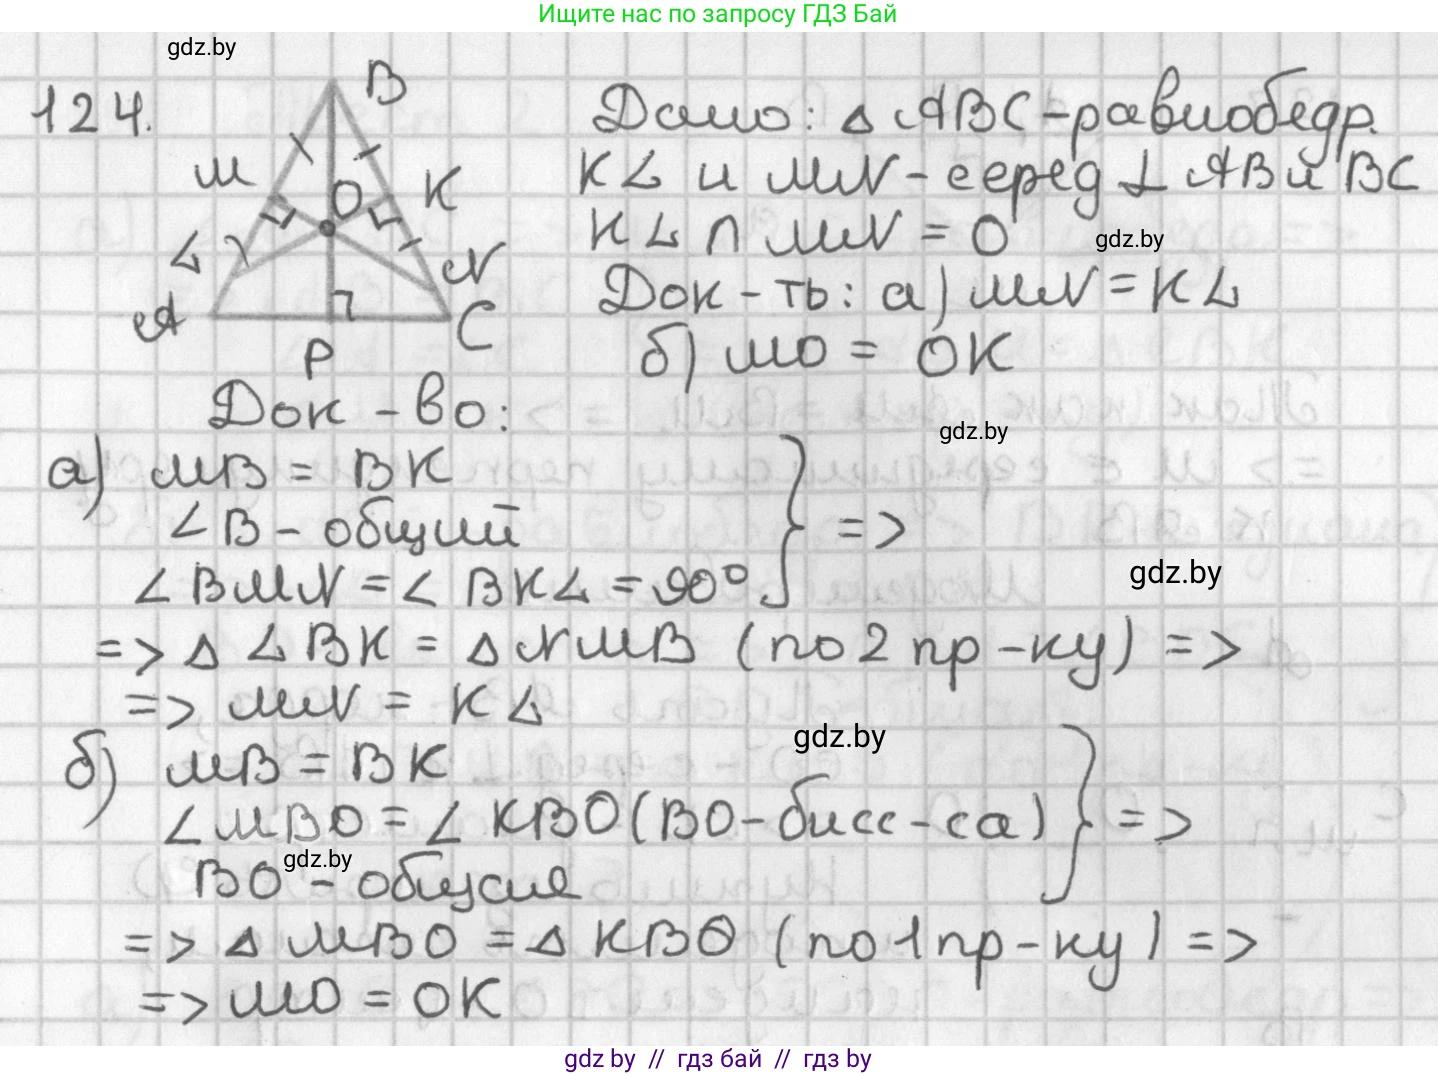 Ищите нас по запросу ГДЗ Бай
gdz.by
124.
B
M
O
K
L
N
A
C
P
Дано: △ ABC - равнобедр.
KL и MN - серед ⊥ AB и BC
KL ∩ MN = O
gdz.by
Док - ть: а) MN = KL
б) MO = OK
Док - во:
gdz.by
а) MB = BK
∠B - общий
∠BMN = ∠BKL = 90°
=>
gdz.by
=> △ LBK = △ NMB (по 2 пр - ку) =>
=> MN = KL
gdz.by
б) MB = BK
∠MBO = ∠KBO (BO - бисс - са)
=>
gdz.by
BO - общая
=> △ MBO = △ KBO (по 1 пр - ку) =>
=> MO = OK
gdz by // гдз бай // гдз by